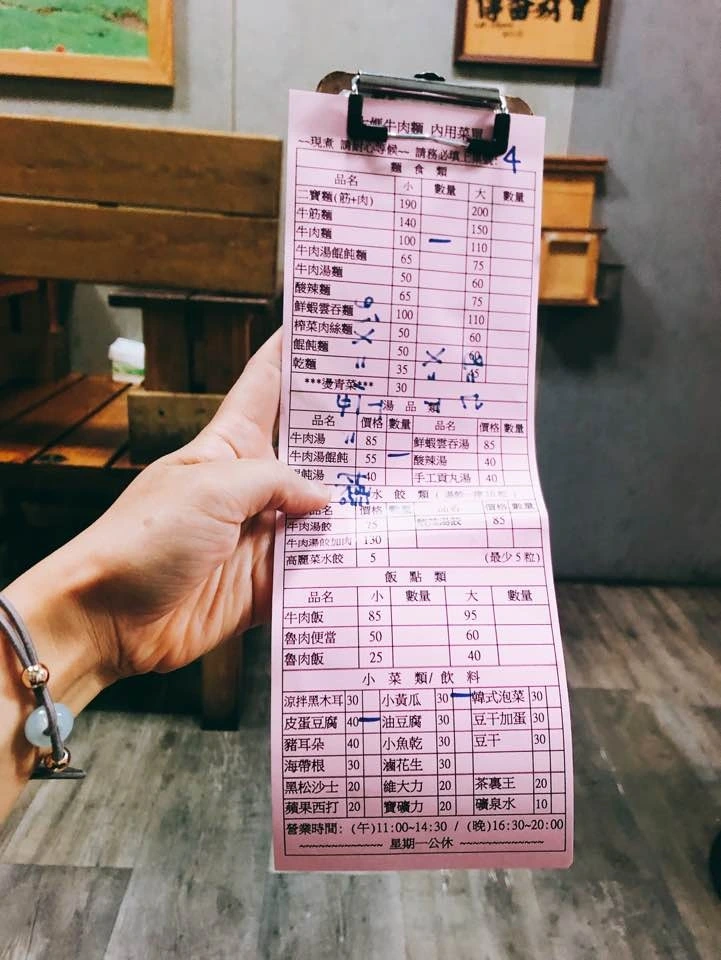 牛肉麵 內用菜單
~~現煮 請耐心等候~~ 請務必填上 4
麵食類
品名 小 數量 大 數量
三寶麵(筋+肉) 190 200
牛筋麵 140 150
牛肉麵 100 一 110
牛肉湯餛飩麵 65 75
牛肉湯麵 50 60
酸辣麵 65 75
鮮蝦雲吞麵 100 110
榨菜肉絲麵 50 60
餛飩麵 50 60
乾麵 35 45
***燙青菜*** 30
湯品類
品名 價格 數量 品名 價格 數量
牛肉湯 85 鮮蝦雲吞湯 85
牛肉湯餛飩 55 一 酸辣湯 40
餛飩湯 40 手工貢丸湯 40
水餃類
品名 價格 數量 品名 價格 數量
牛肉湯餃 75 酸辣湯餃 85
牛肉湯餃加肉 130
高麗菜水餃 5 (最少5粒)
飯點類
品名 小 數量 大 數量
牛肉飯 85 95
魯肉便當 50 60
魯肉飯 25 40
小菜類/飲料
涼拌黑木耳 30 小黃瓜 30 一 韓式泡菜 30
皮蛋豆腐 40 一 油豆腐 30 豆干加蛋 30
豬耳朵 40 小魚乾 30 豆干 30
海帶根 30 滷花生 30
黑松沙士 20 維大力 20 茶裏王 20
蘋果西打 20 寶礦力 20 礦泉水 10
營業時間: (午)11:00~14:30 / (晚)16:30~20:00
~~~~~~~~~~~~~ 星期一公休 ~~~~~~~~~~~~~